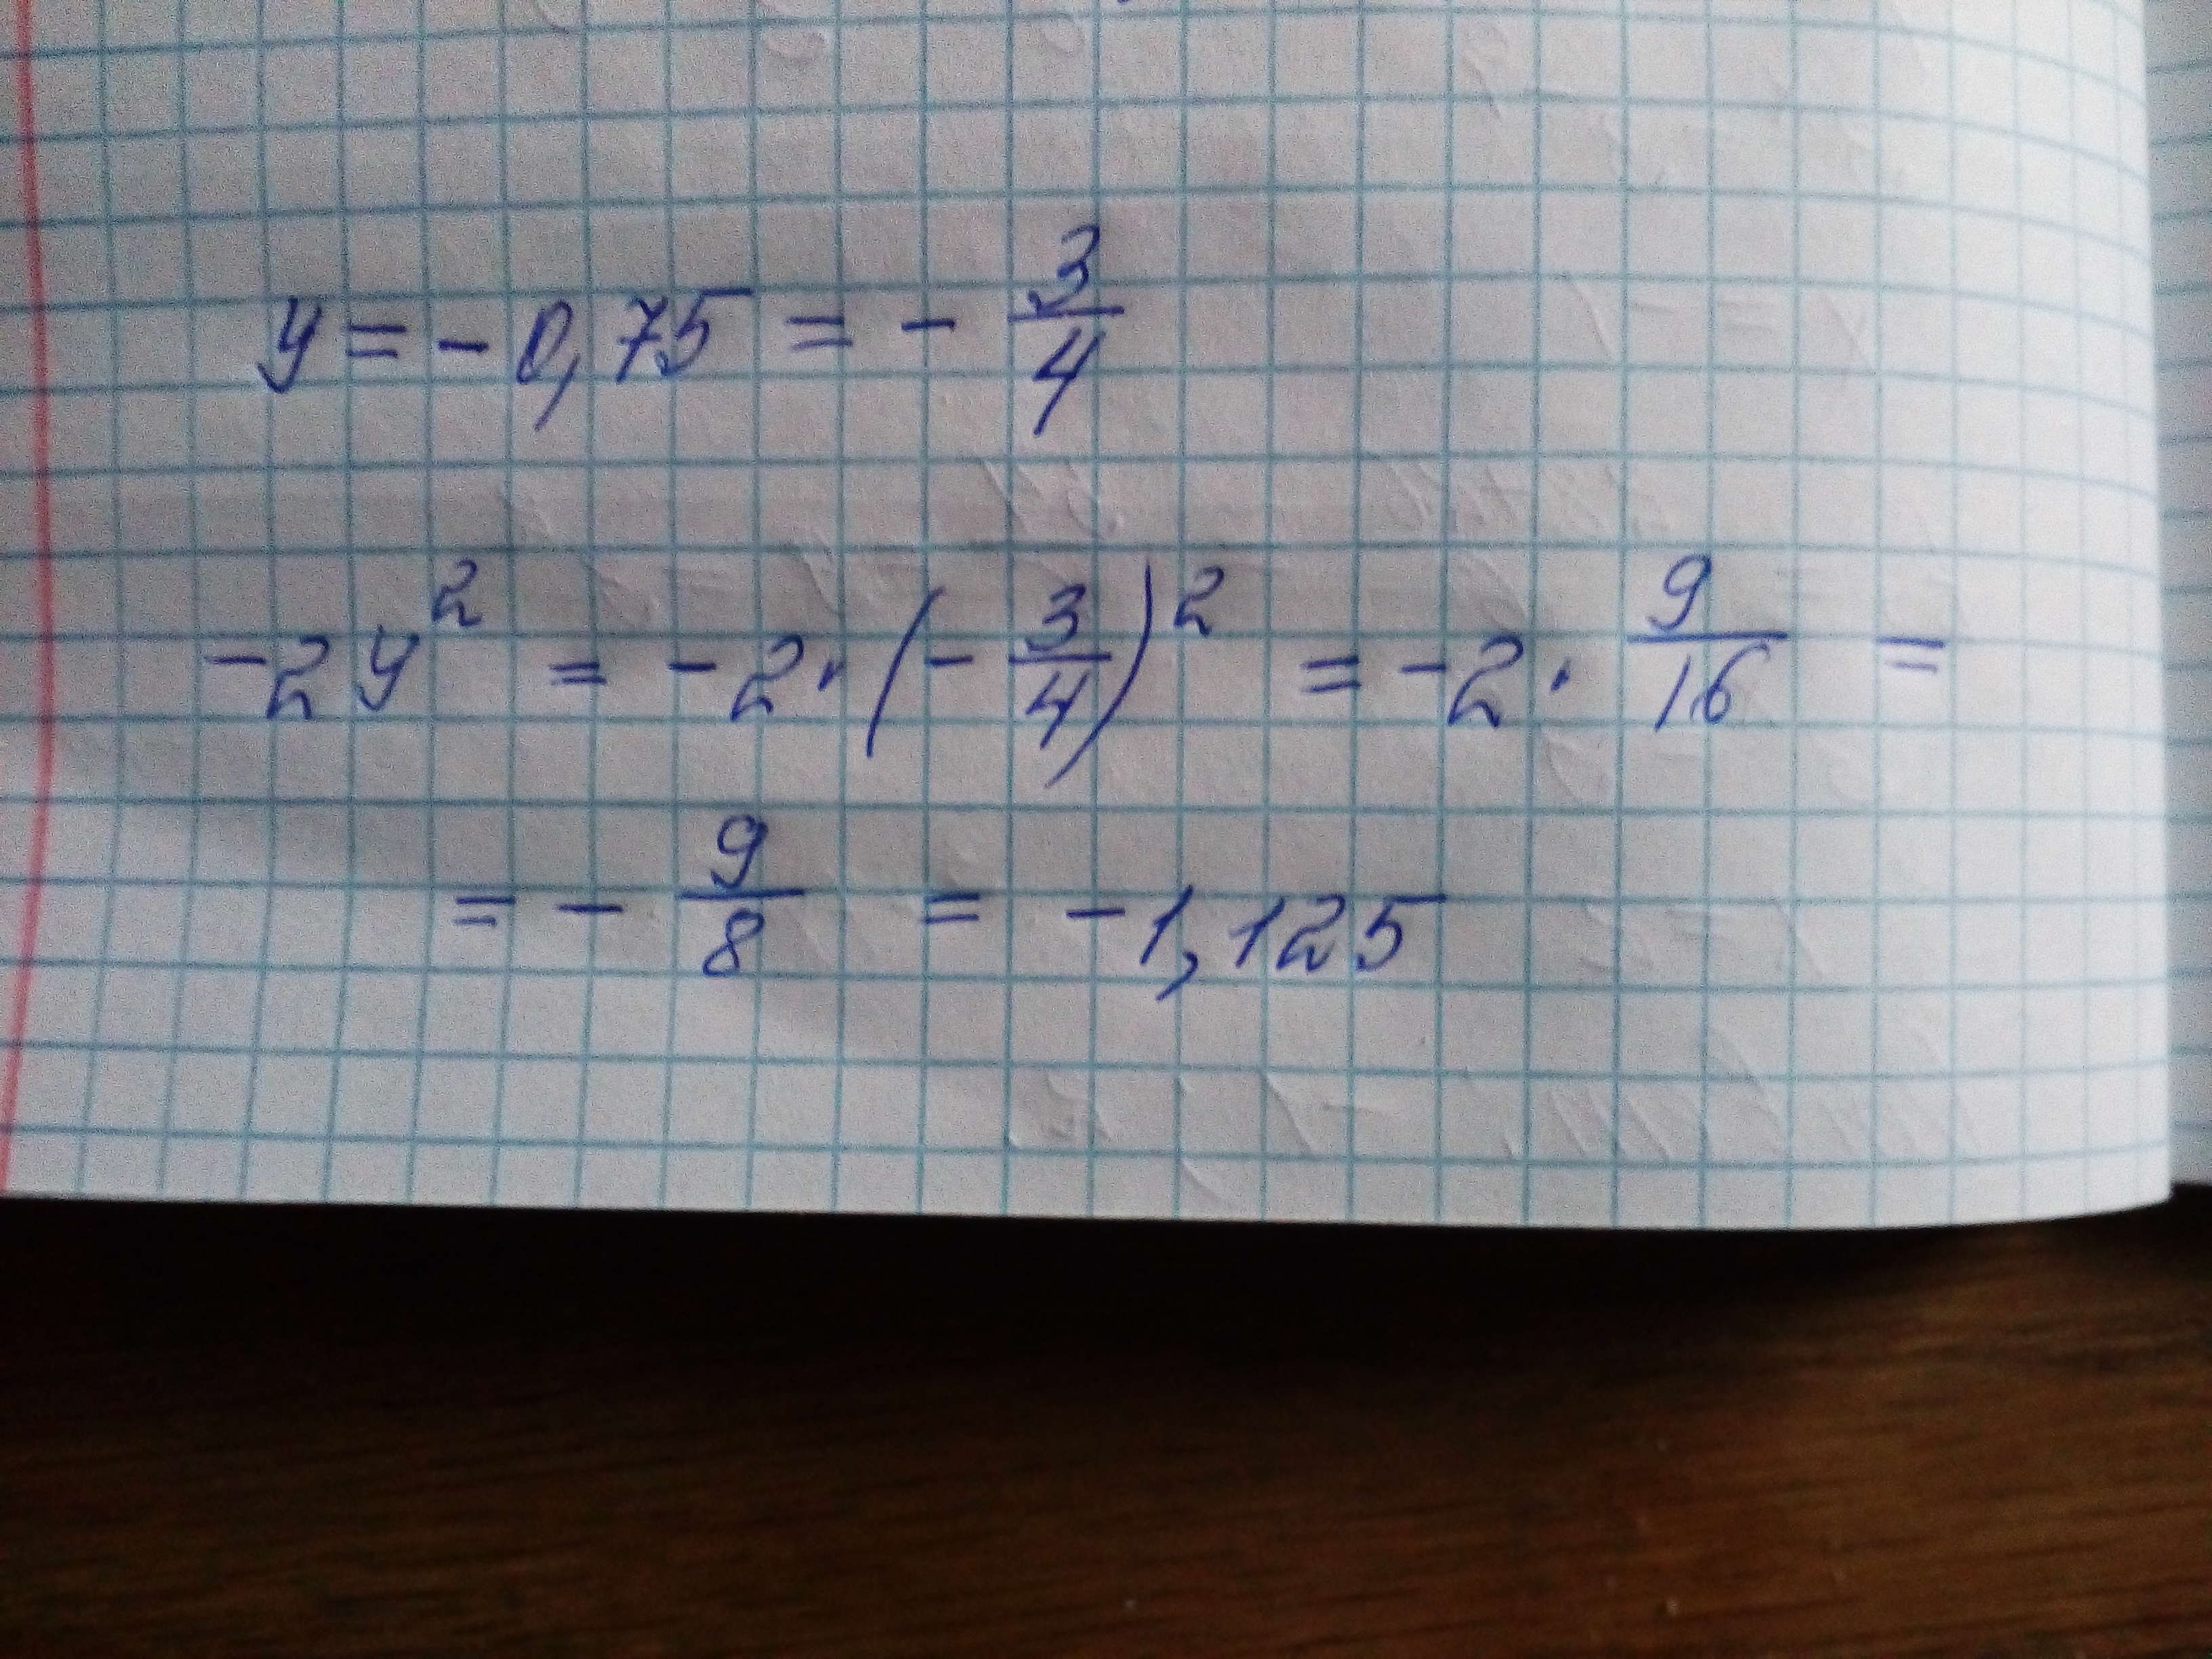 y = - 0,75 = - 3/4
-2y² = -2 · (- 3/4)² = -2 · 9/16 =
= - 9/8 = -1,125